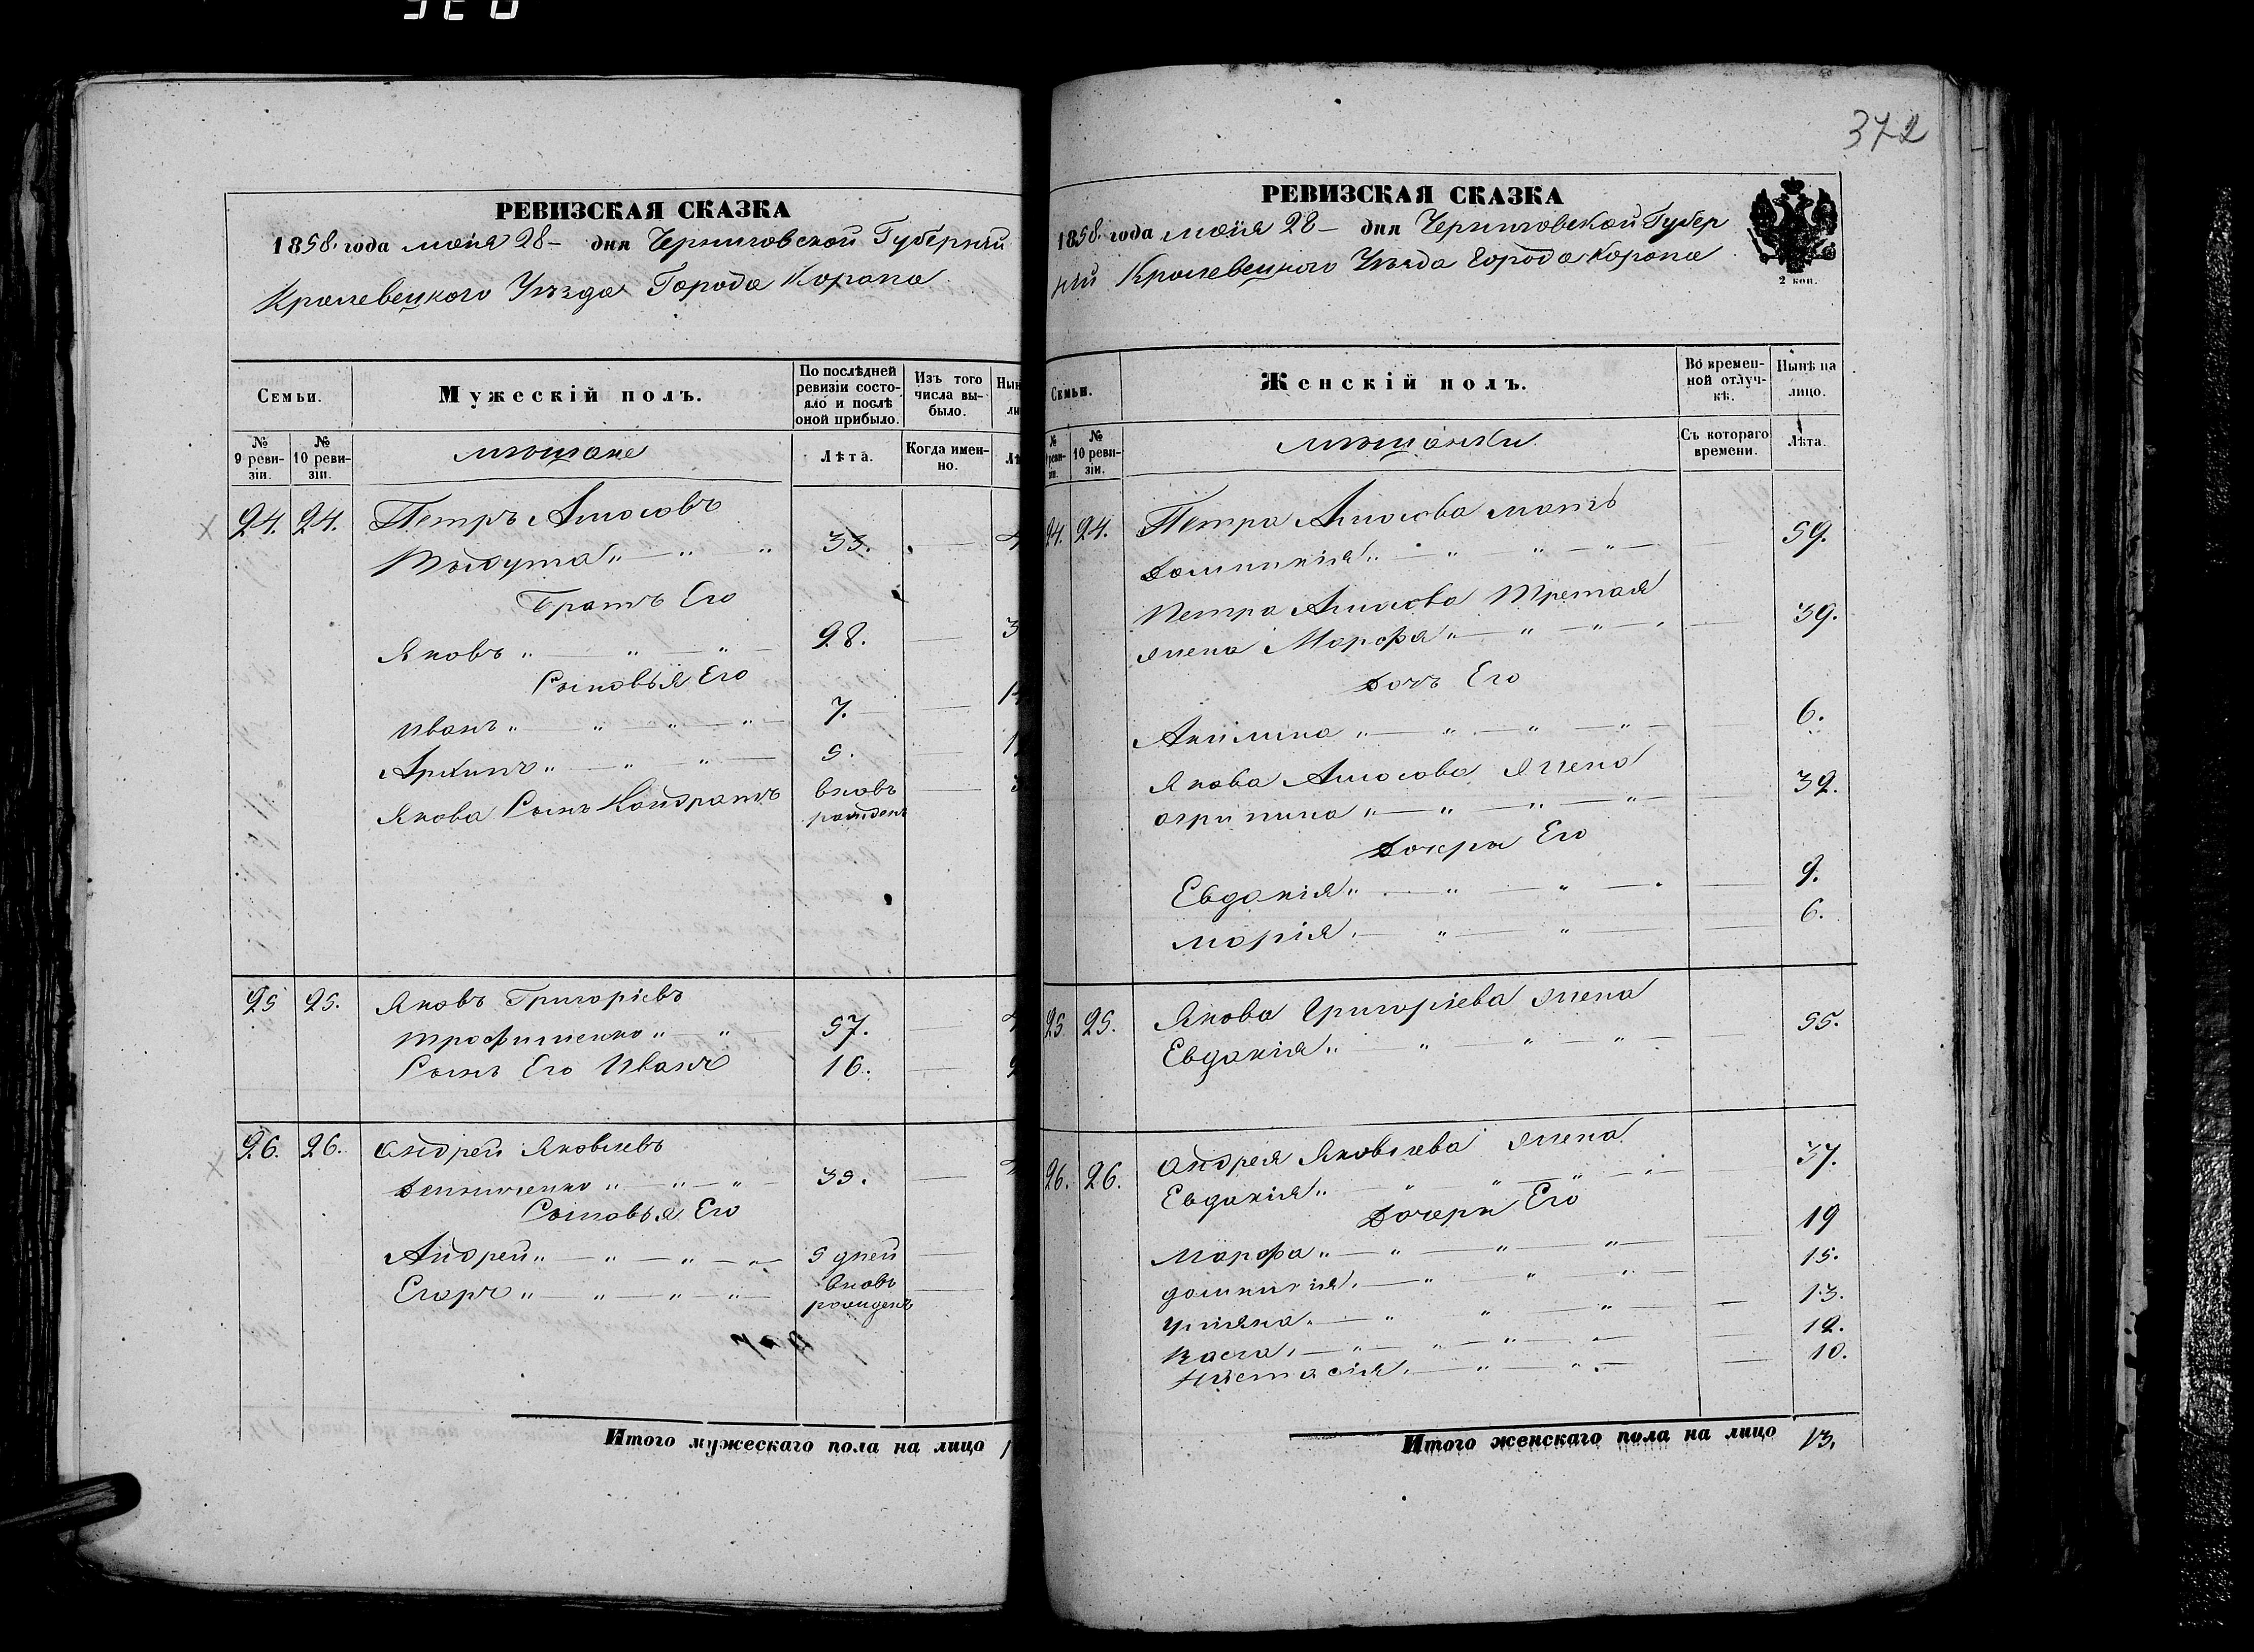 372
РЕВИЗСКАЯ СКАЗКА
1858. года маія 28 – дня Черниговской Губерніи
Кролевецкого Уезда Города Коропа
Семьи.
Мужескій полъ.
По послѣдней ревизіи состояло и послѣ оной прибыло.
Изъ того числа выбыло.
№ 9 ревизіи.
№ 10 ревизіи.
мѣщане
Лѣта.
Когда именно.
24. 24. Петръ Амосовъ
33.
Братъ Его
Яковъ „ — „ — „ — 28.
Сыновья Его
Иванъ „ — „ — „ — „ 7.
Архипъ „ — „ — „ — 5.
Якова Сынъ Кондратъ вновь рожденъ
25 25. Яковъ Григоріевъ
Трофименко „ — „ 57.
Сынъ Его Иванъ 16.
26. 26. Андрей Яковлевъ
„ — „ — „ — 35.
Сыновья Его
Андрей „ — „ — „ — „ 5 дней
Егоръ „ — „ — „ — „ вновь рожденъ
Итого мужескаго пола на лицо 1
РЕВИЗСКАЯ СКАЗКА
1858. года маія 28 – дня Черниговской Губер
ніи Кролевецкого Уезда Города Коропа
2 коп.
Семьи.
Женскій полъ.
Во временной отлучкѣ.
Нынѣ на лицо.
№ 10 ревизіи.
мѣщанки
Съ котораго времени.
Лѣта.
24. 24. Петра Амосова мать
Домникія „ — „ — „ — „ — 59.
Петра Амосова третая
жена Марфа „ — „ — „ — 39.
Дочь Его
Акилина „ — „ — „ — „ 6.
Якова Амосова жена
Агрипина „ — „ — „ — „ 32.
Дочери Его
Евдокія „ — „ — „ — 9.
Марія „ — „ — „ — 6.
25 25. Якова Григоріева жена
Евдокія „ — „ — „ — „ 55.
26. 26. Андрея Яковлева жена
Евдокія „ — „ — „ — „ 37.
Дочери Его
Марфа „ — „ — „ — „ 19
Домникія „ — „ — „ — „ 15.
Уліяна „ — „ — „ — „ 13.
„ — „ — „ — „ 12.
Настасія „ — „ — „ 10.
Итого женскаго пола на лицо 13.